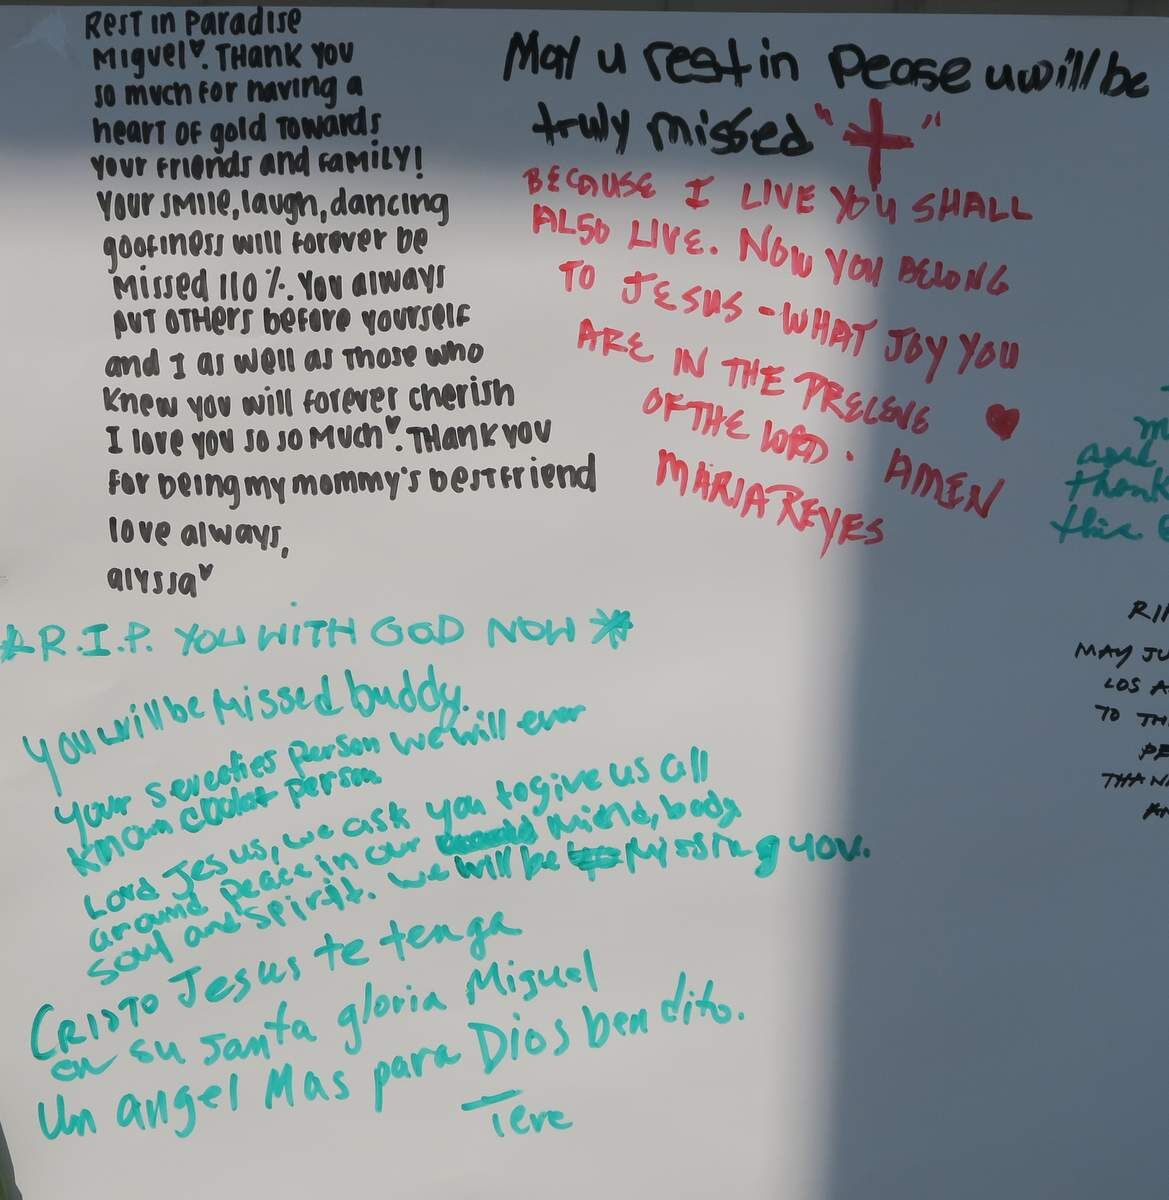 REST in PARADISE
MIGUEL♥. THANK YOU
SO MUCH FOR HAVING A
HEART OF GOLD TOWARDS
YOUR FRIENDS AND FAMILY!
YOUR SMILE, LAUGH, DANCING
GOOFINESS WILL FOREVER BE
MISSED 110%. YOU ALWAYS
PUT OTHERS BEFORE YOURSELF
AND I AS WELL AS THOSE WHO
KNEW YOU WILL FOREVER CHERISH
I LOVE YOU SO SO MUCH♥. THANK YOU
FOR BEING MY MOMMY'S BESTFRIEND
LOVE ALWAYS,
ALYSSA♥
May u rest in Pease u will be
truly missed "✝"
BECAUSE I LIVE YOU SHALL
ALSO LIVE. NOW YOU BELONG
TO JESUS - WHAT JOY YOU
ARE IN THE PRECENE ♥
OF THE LORD. AMEN
MARIA REYES
R.I.P. YOU WITH GOD NOW
You will be Missed buddy.
Your sweeties person we will ever
known person
Lord Jesus, we ask you to give us all
around peace in our mind, body
soul and spirit. we will be Missing you.
CRISTO Jesus te tenga
en su santa gloria Miguel
un angel Mas para Dios bendito.
Tere
and
thank
this
MAY JU
LOS A
TO TH
PE
THAN